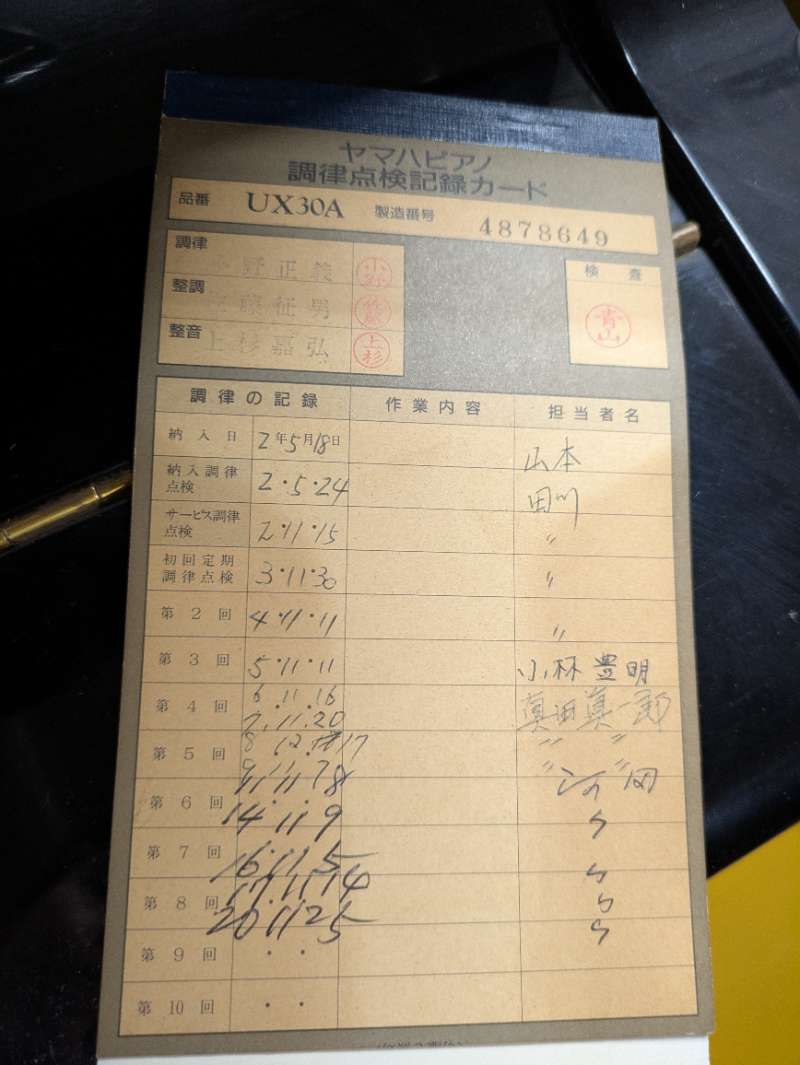 ヤマハピアノ
調律点検記録カード
品番 UX30A 製造番号 4878649
調律 野正義 小野
整調 藤征男
整音 上杉嘉弘 上杉
検査
青山
調律の記録 作業内容 担当者名
納入日 2年5月18日 山本
納入調律点検 2・5・24 田川
サービス調律点検 2・11・15 〃
初回定期調律点検 3・11・30 〃
第2回 4・11・11 〃
第3回 5・11・11 小林豊明
第4回 6.11.16 真田真一郎
7.11.20 〃 〃
第5回 8 12 17 〃 〃
11 11 8 河田
第6回 14.11.9 〃
第7回 16.11.5 〃
17.11.14 〃
第8回 20 11 25 〃
第9回 ・ ・
第10回 ・ ・